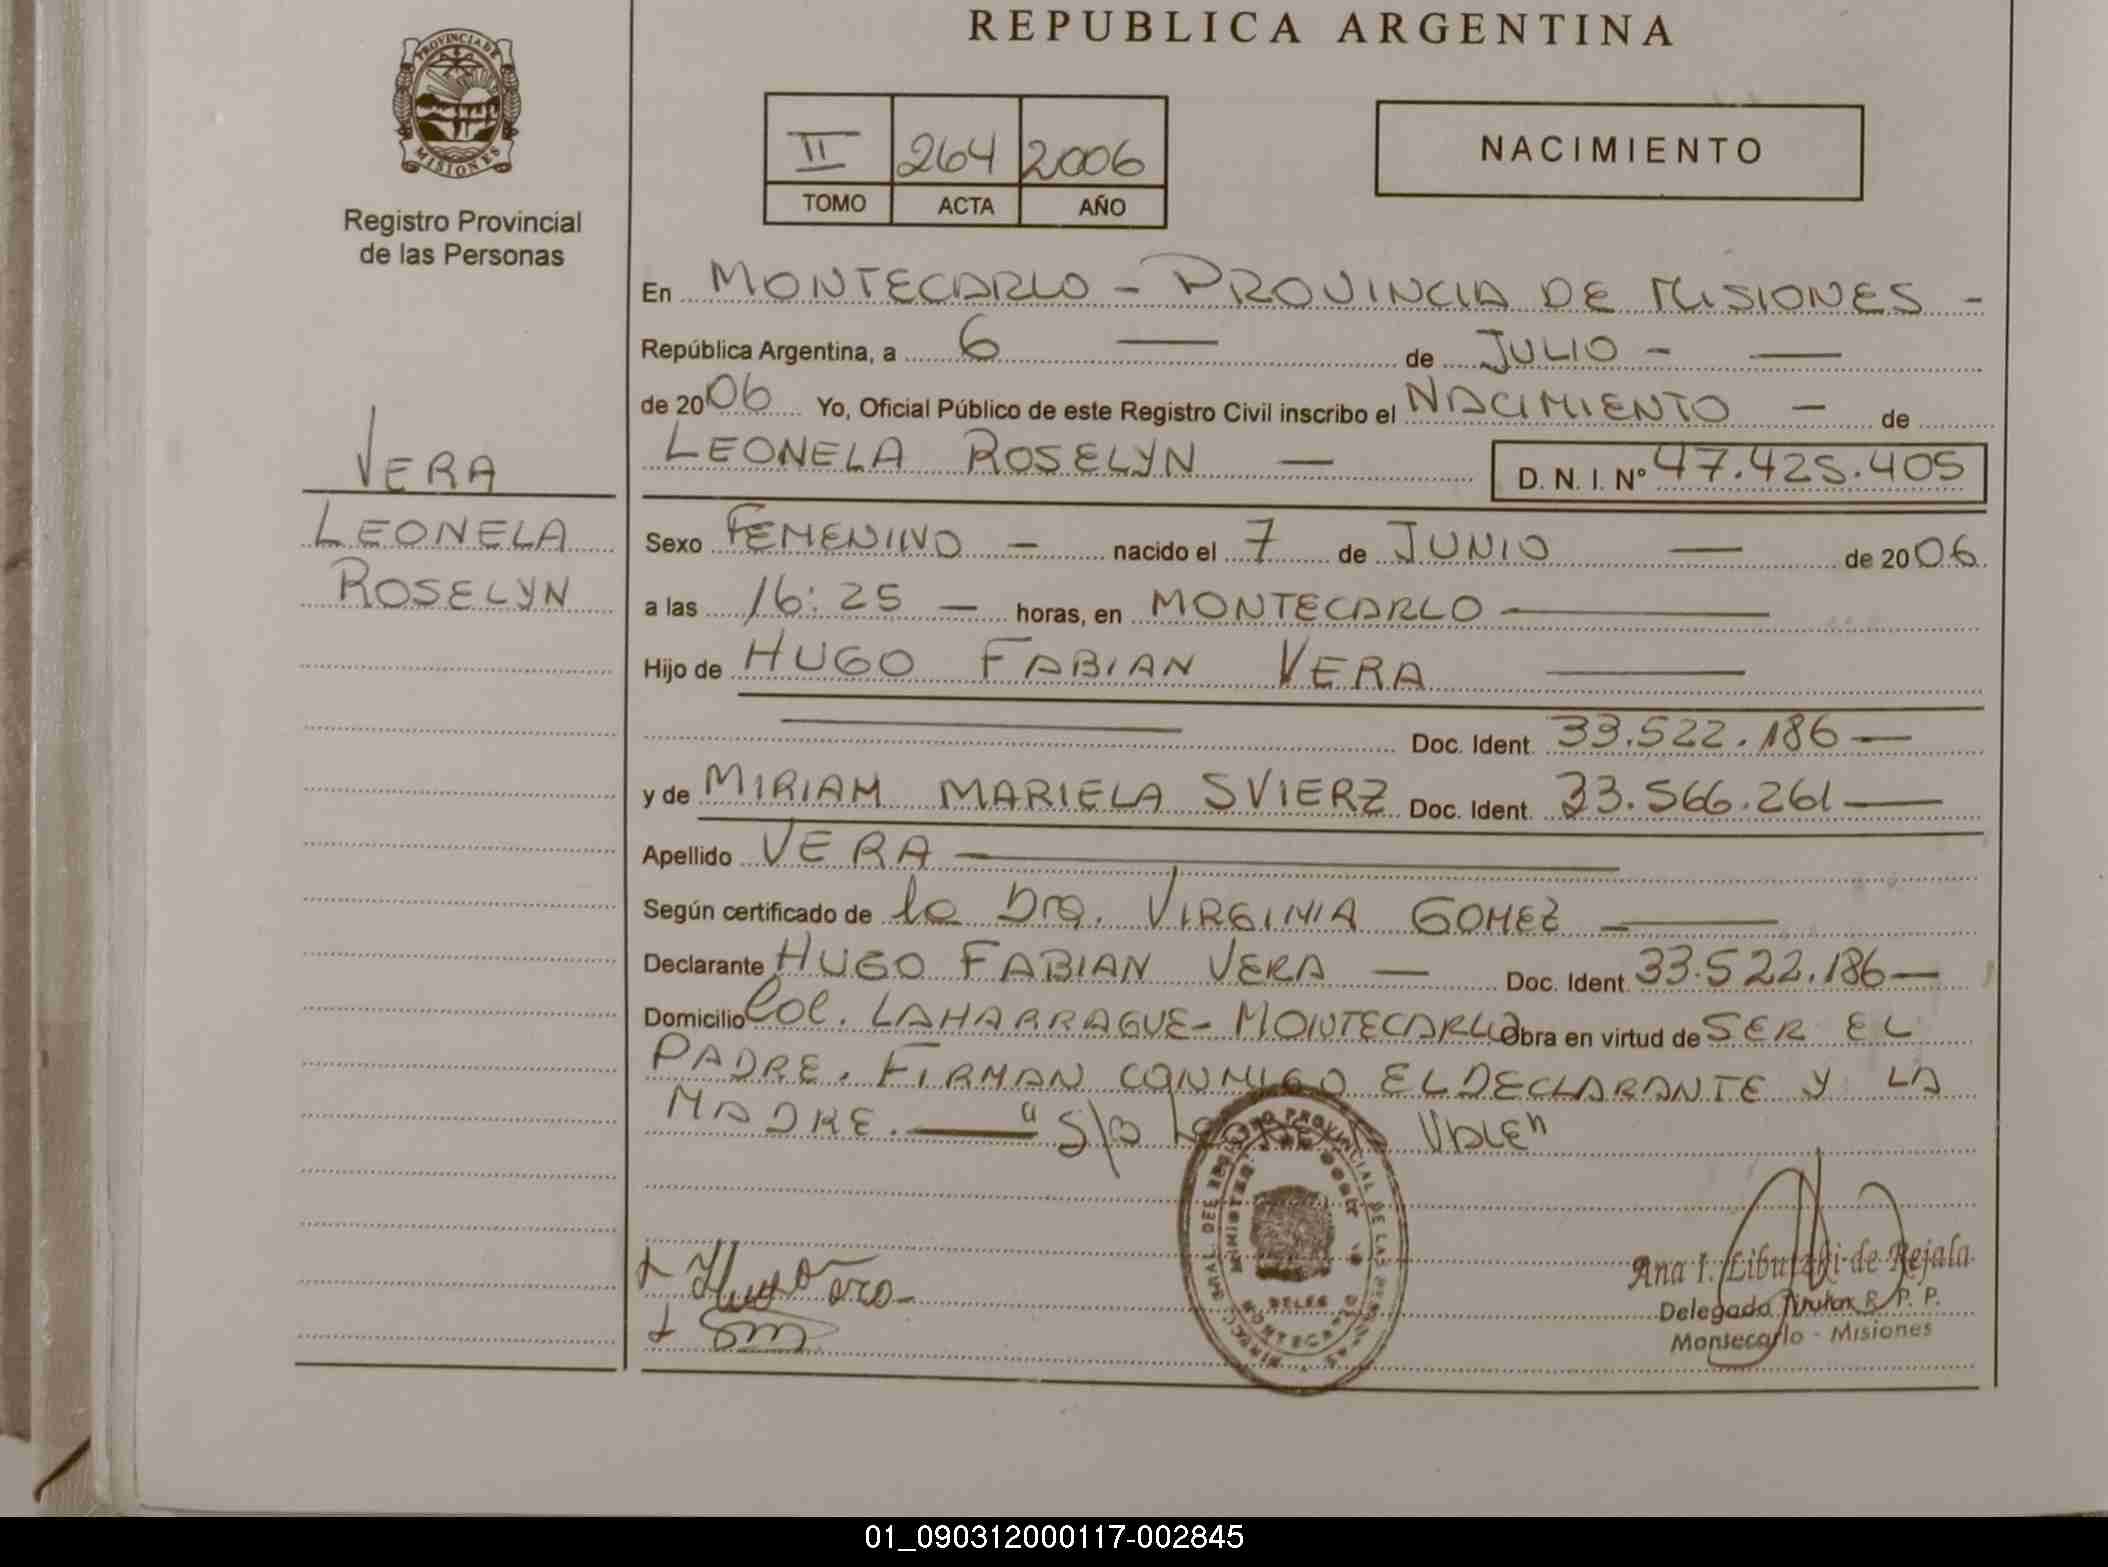 REPUBLICA ARGENTINA
PROVINCIA DE
MISIONES
Registro Provincial
de las Personas
II 264 2006
TOMO ACTA AÑO
NACIMIENTO
VERA
LEONELA
ROSELYN
En MONTECARLO - PROVINCIA DE MISIONES -
República Argentina, a 6 — de JULIO - —
de 2006 Yo, Oficial Público de este Registro Civil inscribo el NACIMIENTO - de
LEONELA ROSELYN — D. N. I. Nº 47.425.405
Sexo FEMENINO - nacido el 7 de JUNIO — de 2006.
a las 16:25 — horas, en MONTECARLO —
Hijo de HUGO FABIAN VERA —
— Doc. Ident. 33.522.186 —
y de MIRIAM MARIELA SVIERZ Doc. Ident. 33.566.261 —
Apellido VERA —
Según certificado de la Dra. VIRGINIA GOMEZ —
Declarante HUGO FABIAN VERA — Doc. Ident. 33.522.186 —
Domicilio Col. LAHARRAGUE - MONTECARLO Obra en virtud de SER EL
PADRE. FIRMAN CONMIGO EL DECLARANTE Y LA
MADRE. — "S/B VALE"
REGISTRO PROVINCIAL DE LAS
MONTECARLO
Ana I. de Rejala
Delegada Titular R. P. P.
Montecarlo - Misiones
01_090312000117-002845